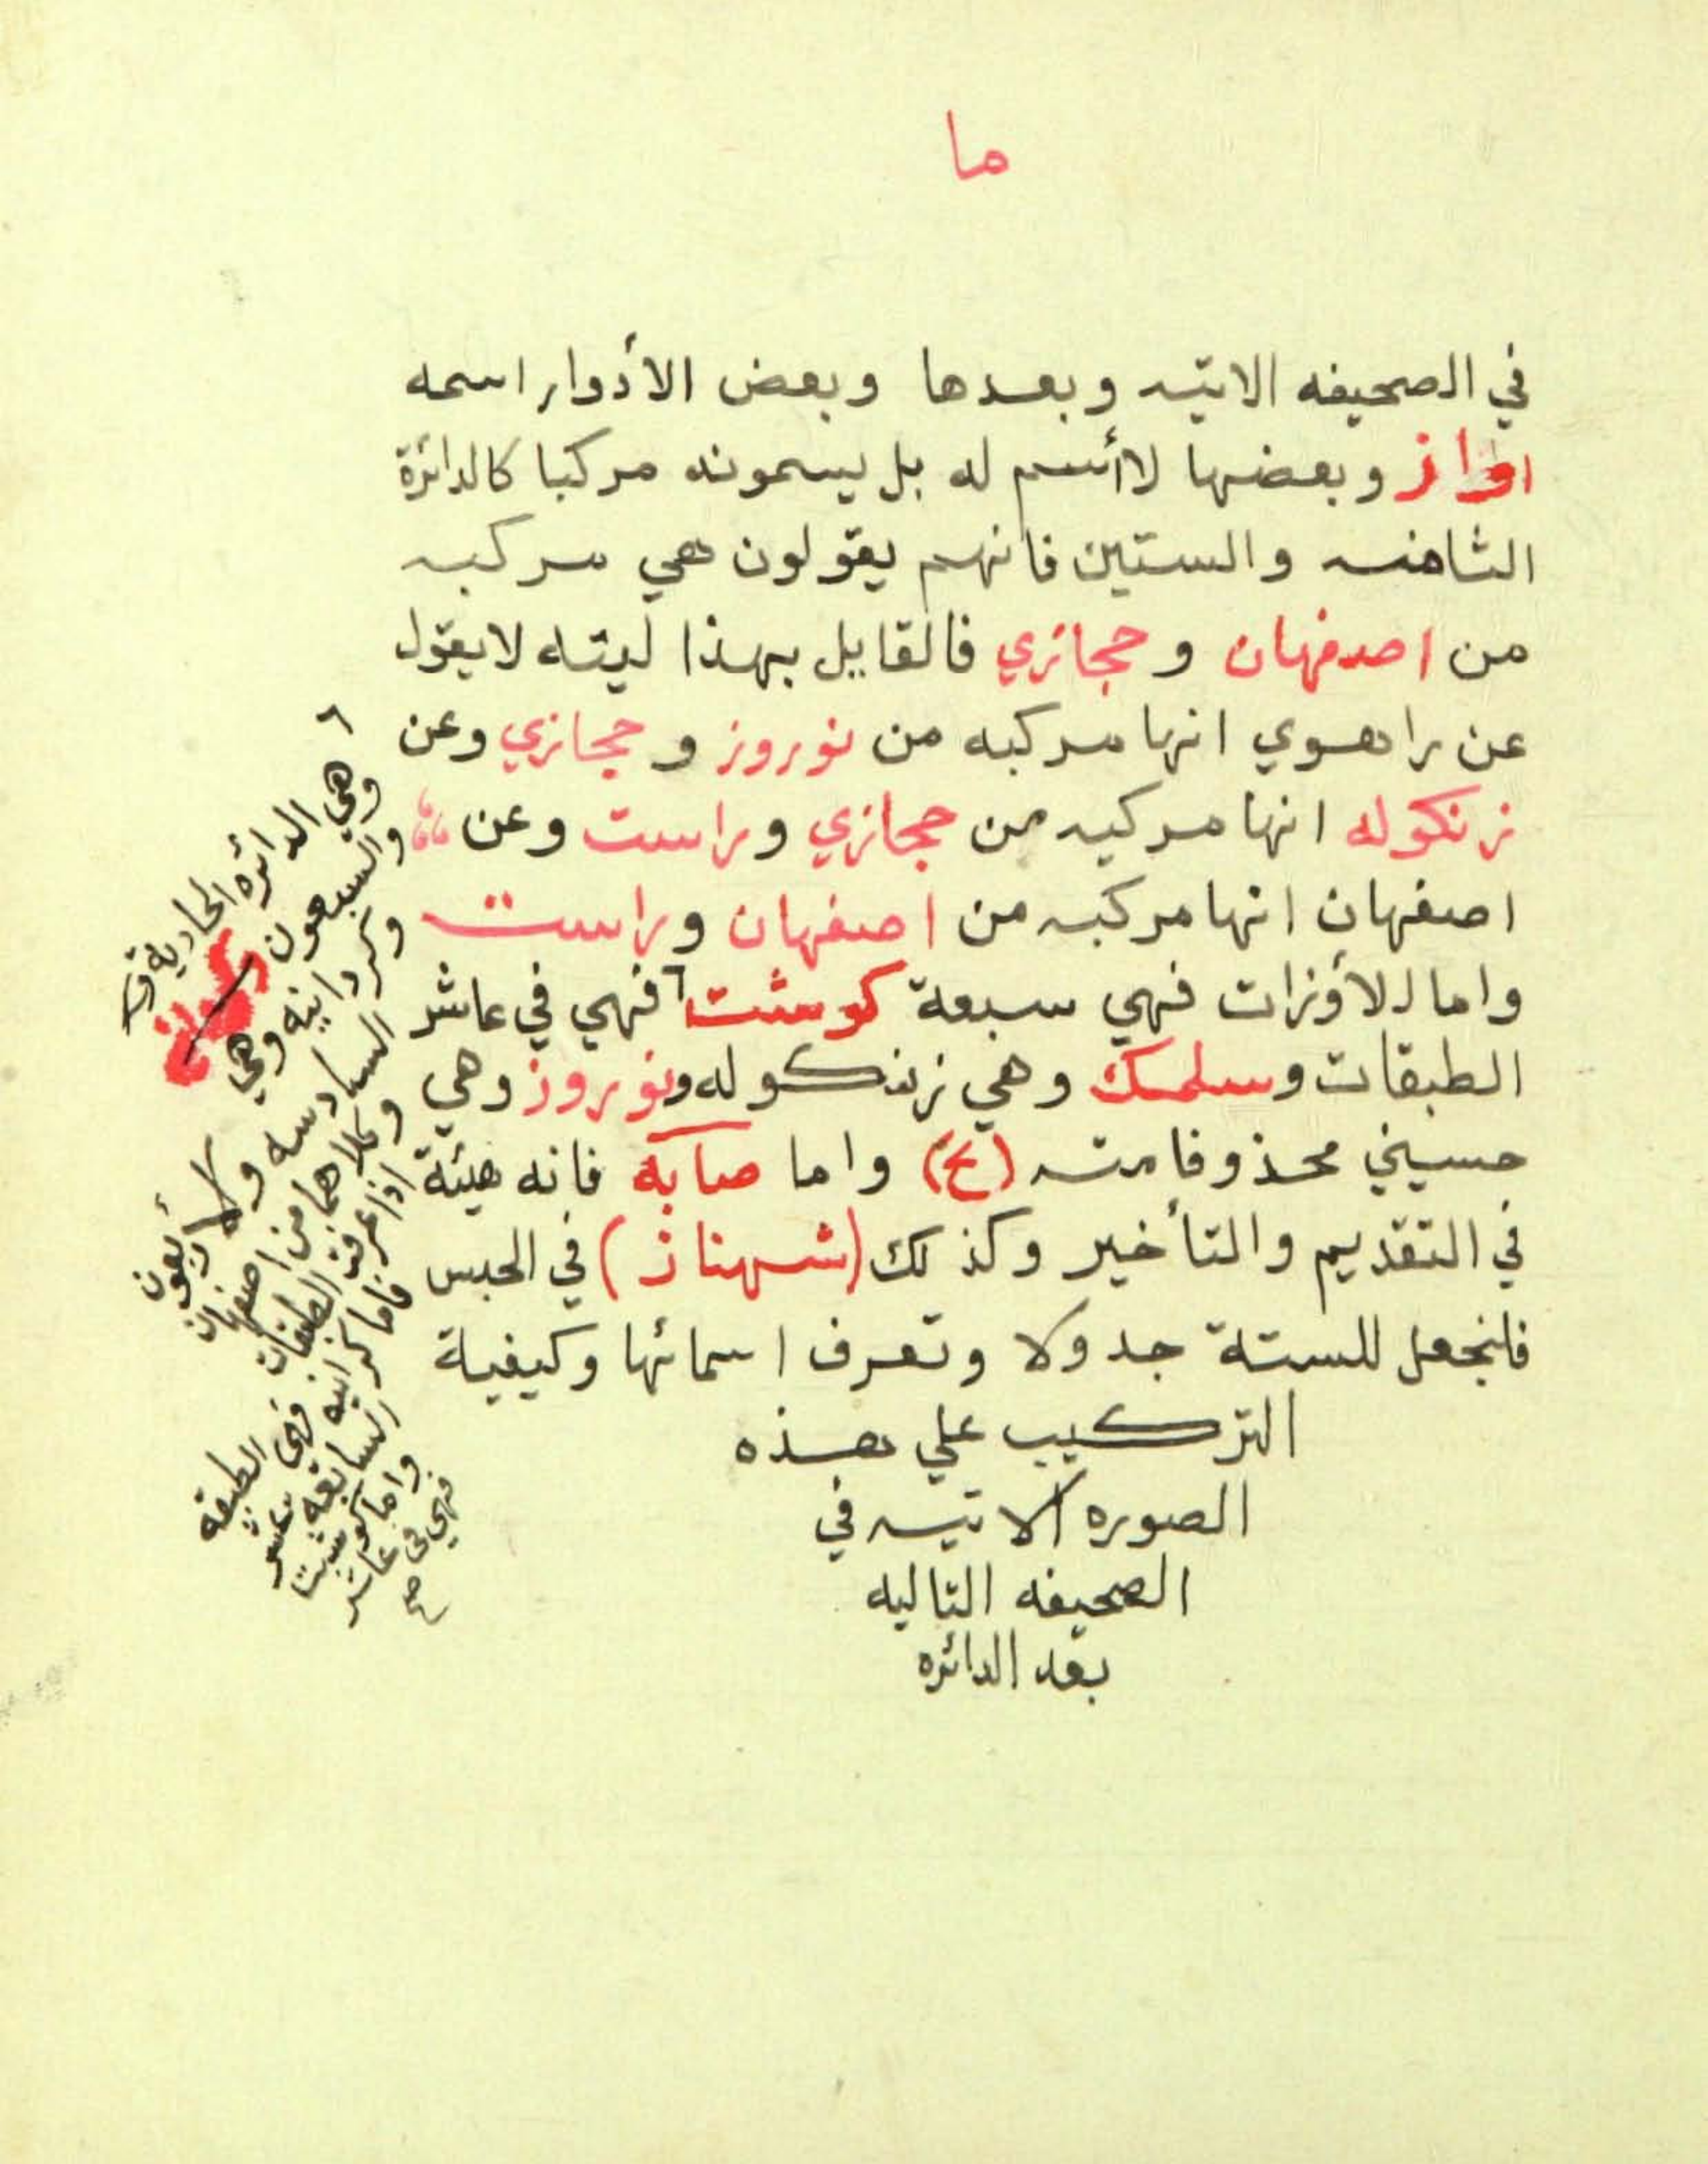 ما
في الصحيفه الاتيه وبعدها وبعض الأدوار اسمه
اواز وبعضها لاأسم له بل يسمونه مركبا كالدائرة
الثامنه والستين فانهم يقولون هي مركبه
من اصفهان و حجازي فالقايل بهذا ليته لايقول
عن راهوي انها مركبه من نوروز و حجازي وعن
زنكوله انها مركبه من حجازي وراست وعن
اصفهان انها مركبه من اصفهان وراست
واما الأوزات فهي سبعة كوشت٦ فهي في عاشر
الطبقات وسلمك وهي زنكوله ونوروز وهي
حسيني محذوفا منه (ع) واما صابه فانه هيئة
في التقديم والتأخير وكذلك (شهناز) في الحبس
فلنجعل للستة جدولا وتعرف اسمائها وكيفية
التركيب علي هذه
الصوره الاتيه في
الصحيفه التاليه
بعد الدائره
٦
وهي الدائره الحاديه
والسبعون
وكردانيه وهي
السادسه والأربعون
وكلاهما من اصفهان
اذا عرفت الطبقات
فاما كردانيه فهي الطبقه
السابعه عشر
واما كوشت
فهي في عاشر
صح